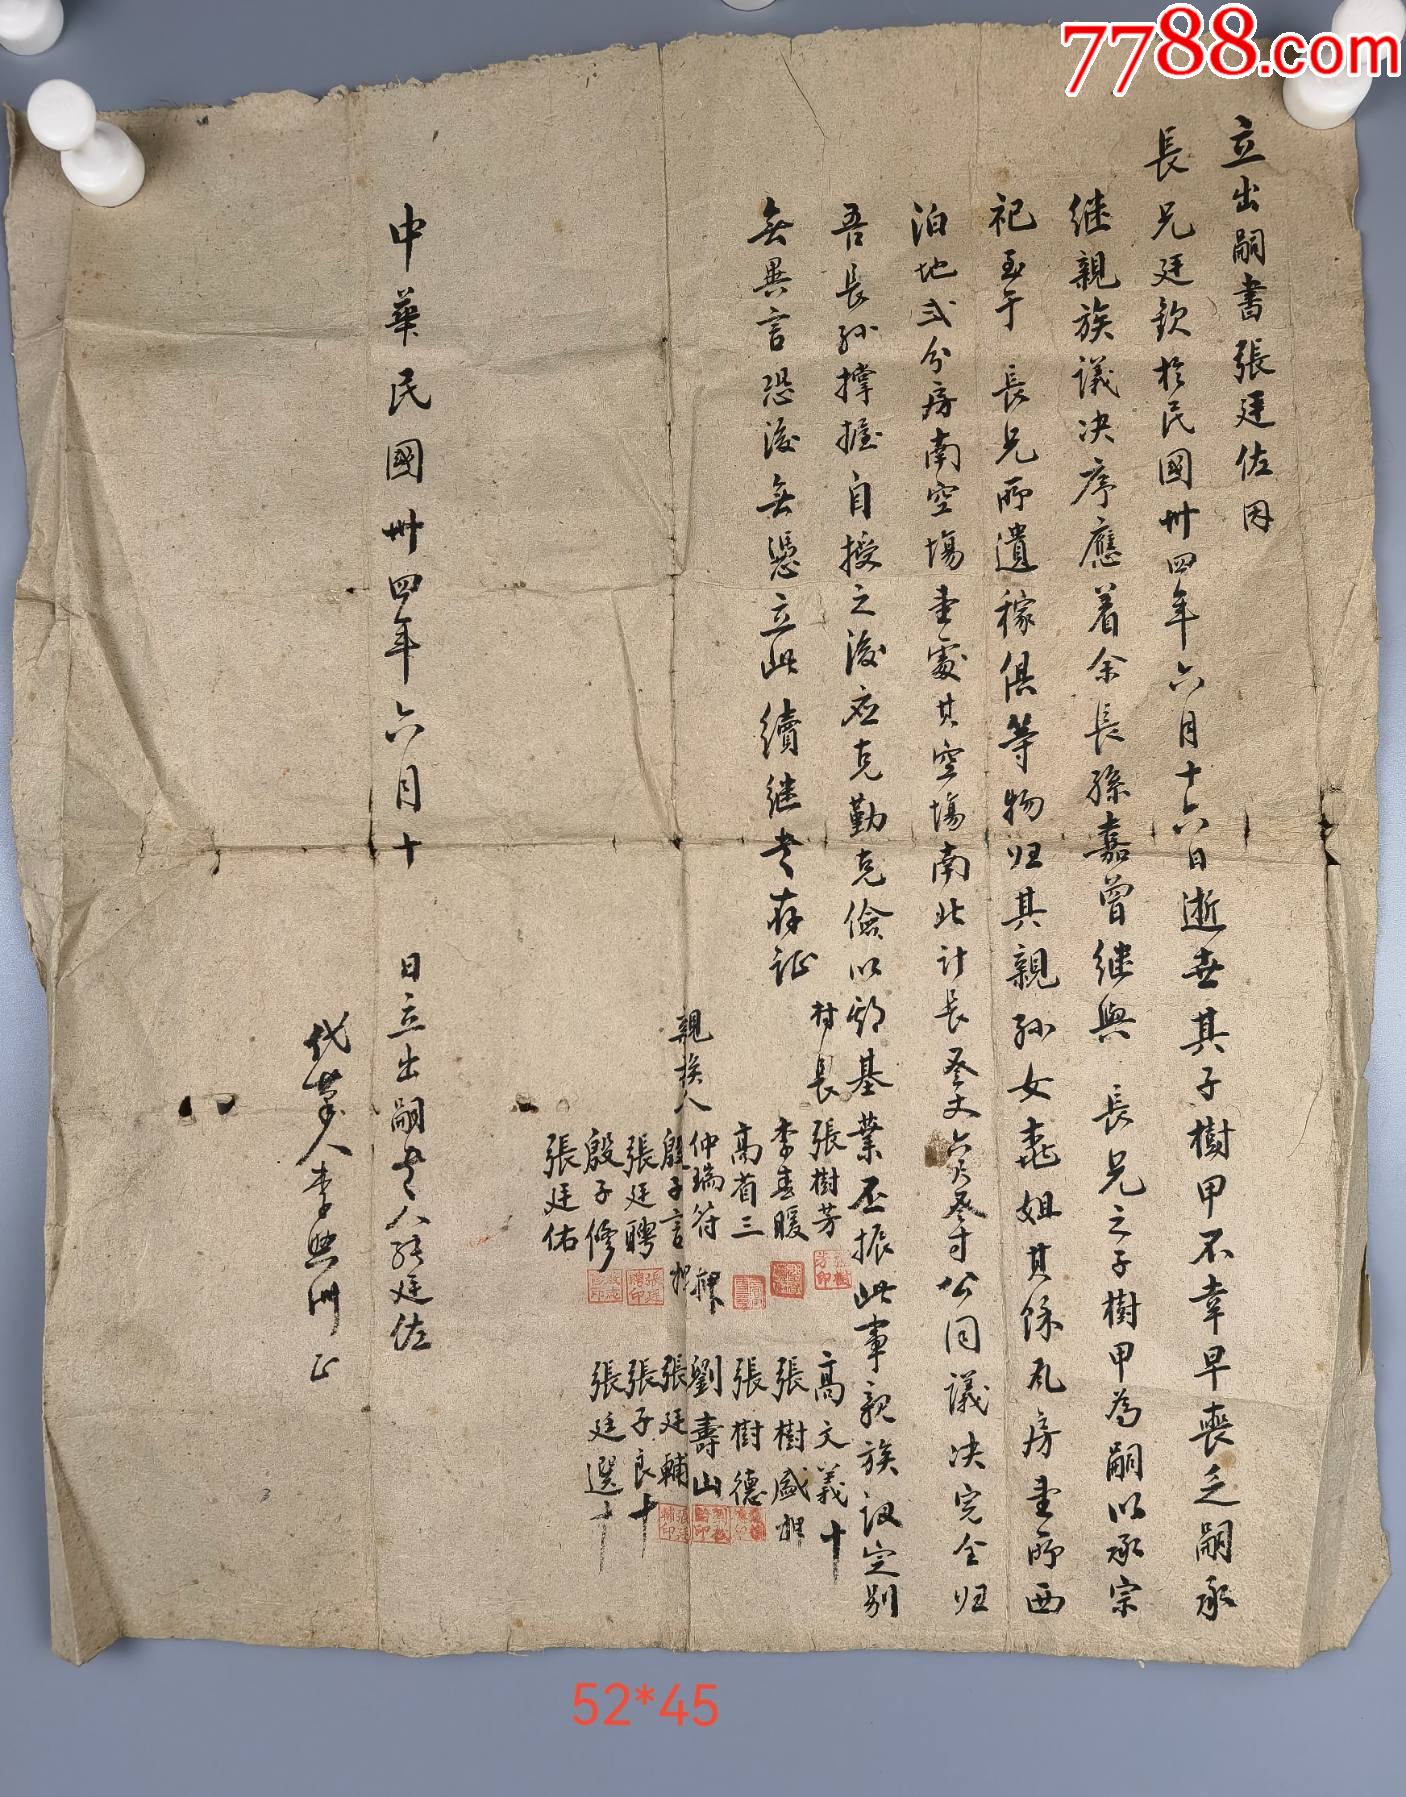 7788.com
立出嗣書張廷佐因
長兄廷欽於民國卅四年六月十六日逝世其子樹甲不幸早喪乏嗣承
继親族議决序應着余長孫嘉曾继與 長兄之子樹甲為嗣以承宗
祀至于 長兄所遺稼俱等物归其親孙女 姐其餘瓦房壹所西
泊地弍分房南空塲壹處其空塲南北计長叁丈六尺叁寸公同議决完全归
吾長孙撑握自授之後应克勤克儉以 基業丕振此事親族议定别
無異言恐後無憑立此續继書存证
村長 張樹芳 高文義 十
李春暖 張樹盛 押
高省三 張樹德
親族人 仲瑞符 押 劉壽山
殷子言 押 張廷輔
張廷聘 張子良 十
殷子修 張廷選 十
張廷佑
中華民國卅四年六月十 日立出嗣書人張廷佐
代草人李興洲
52*45